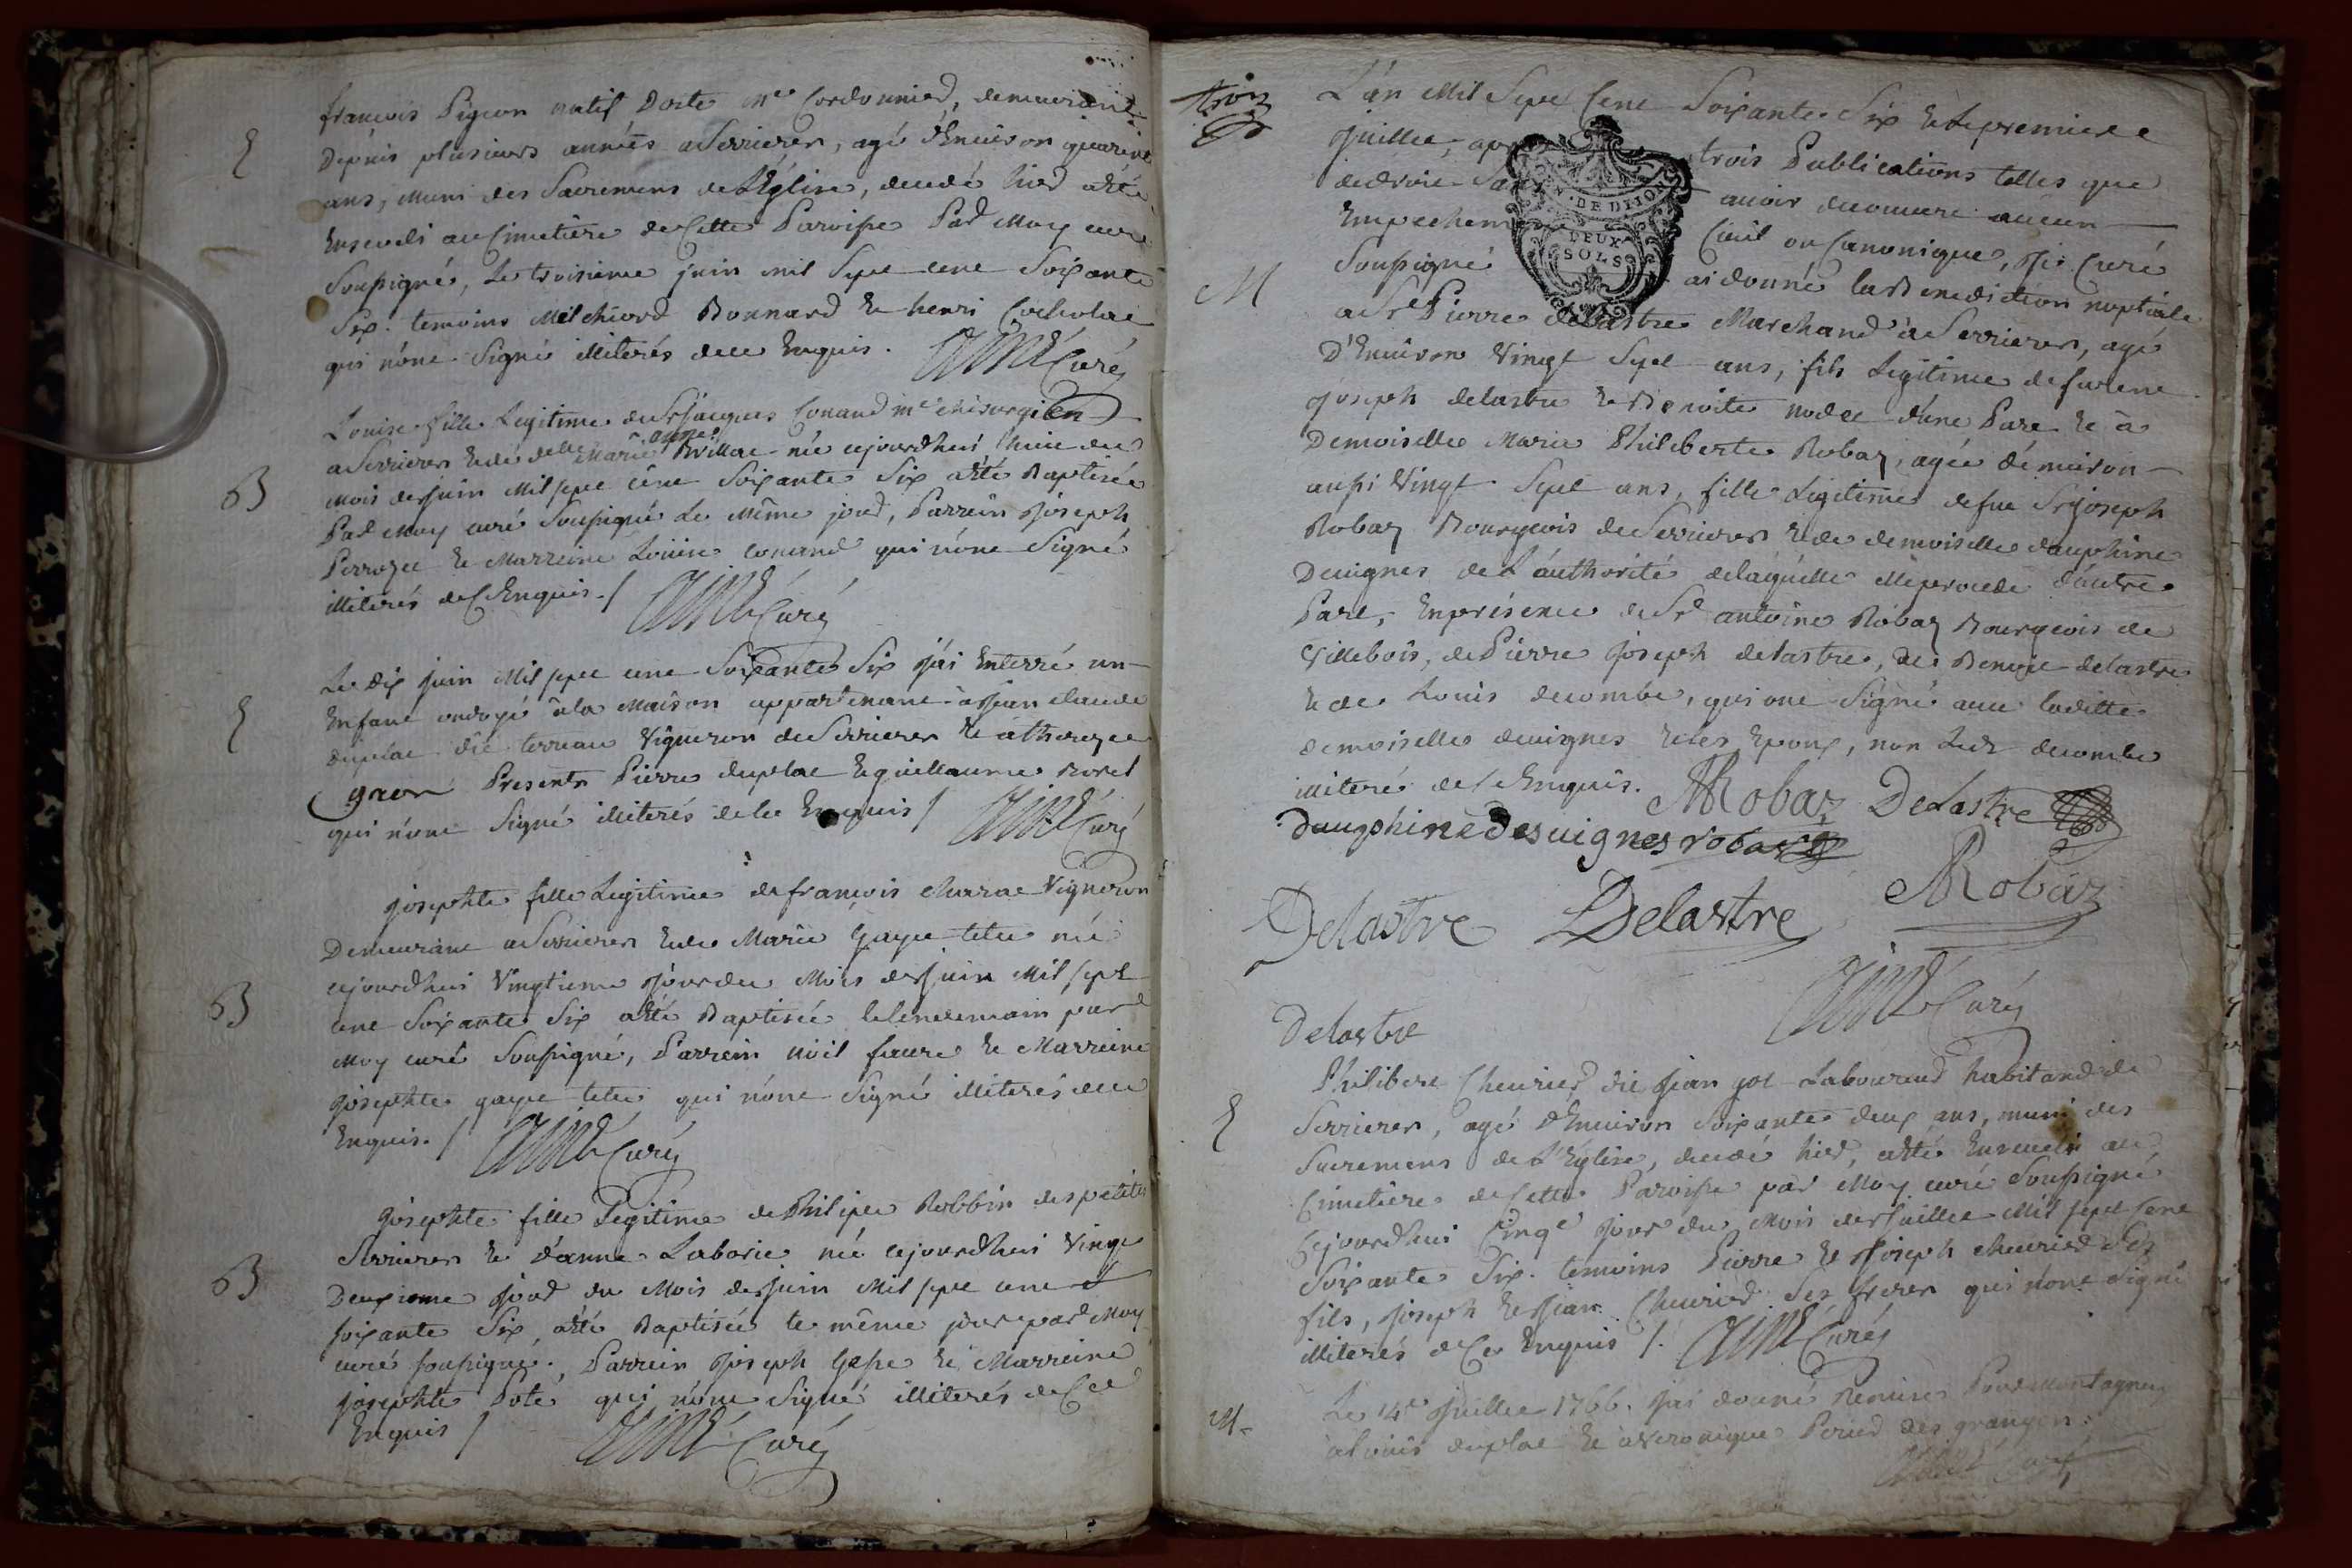 françois Pigeon natif Doste Me Cordonnier, demeurant
Depuis plusieurs années a Serrieres, agé d'Environ quarente
E
ans, Muni des Sacremens de L'Eglise, decedé hier a été
Enseveli au Cimetiere de Cette Paroisse Par Moy curé
Soussigné, Le troisieme juin mil Sept cent Soixante
Six. temoins Melchiord Bonnard Et henri
qui n'ont Signé illiterés de ce Enquis. Curé
Louise fille Legitime du Sr jacques Conand me chirurgien
a Serrieres Et de delle Marie anne née cejourdhui huit du
B
Mois de juin Mil sept cent Soixante Six a été Baptisée
Par Moy curé Soussigné Le Même jour, Parrein joseph
Perrozet Et Marreine Louise conand qui n'ont Signé
illiterés de C Enquis./ Curé
Le dix juin Mil sept cent Soixante Six j'ai Enterré un
E
Enfant ondoyé à la Maison appartenant a jean claude
duplat dit terreau Vigneron de Serrieres Et a therezze
gron Presents Pierre duplat Et guillaume Borel
qui n'ont Signé illiterés de ce Enquis / Curé
josephte fille Legitime de françois charat Vigneron
Demeurant a Serrieres Et de Marie gaget tetu née
cejourdhui Vingtieme jour du Mois de juin Mil sept
B
cent Soixante Six a été Baptisée le lendemain par
Moy curé Soussigné, Parrein noël faure Et Marreine
josephte gaget tetu qui n'ont Signé illiterés de ce
Enquis./ Curé
josephte fille Legitime de Philipe Robbin des petites
Serrieres Et d'anne Laborie née cejourdhui Vingt
B
Deuxieme jour du Mois de juin Mil sept cent
soixante Six, a été Baptisée le même jour par Moy
curé soussigné., Parrein joseph Et Marreine
josephte Poté qui n'ont Signé illiterés de Ce
Enquis / Curé
L'an Mil Sept Cent Soixante Six Et le premier
juillet, trois Publications telles que
DE DIJON
de droit Sans avoir decouvert aucun
DEUX
SOLS
Empechement Civil ou Canonique, je Curé
Soussigné ai donné la Benediction nuptiale
M
a Sr Pierre delastre Marchand a Serrieres, agé
D'Environ Vingt Sept ans, fils Legitime de
joseph delastre Et Benoite d'une Part Et à
Demoiselle Marie Philiberte Robaz, agée d'environ
aussi Vingt Sept ans, fille Legitime de feu Sr joseph
Robaz Bourgeois de Serrieres Et de demoiselle dauphine
Deuignes de L'authorité de laquelle elle procede d'autre
Part, En présence de Sr antoine Robaz Bourgeois de
Villebois, de Pierre joseph delastre, de Benoit delastre
Et de Louis decombe, qui ont Signé avec laditte
demoiselle deuignes Et les Epoux, non Ledt decombe
illiteré de C Enquis. MRobaz Delastre
Dauphine Desuignes robaz
Delastre Delastre ARobaz
Curé
Delastre
Philibert Cheurier dit jean got Laboureur habitant de
E
Serrieres, agé d'Environ Soixante deux ans, muni des
Sacremens de L'Eglise, decedé hier, a été Enseveli au
Cimetiere de Cette Paroisse par Moy curé Soussigné
Cejourdhui Cinqe jour du Mois de juillet Mil sept Cent
Soixante Six. temoins Pierre Et joseph cheurier ses
fils, joseph Et jean Cheurier Ses freres qui n'ont Signé
illiterés de Ce Enquis /. Curé
M
Le 14e juillet 1766. j'ai donné Remise Pour Montagnieu
a Louis duplat Et a Veronique Perier des granges.
Curé